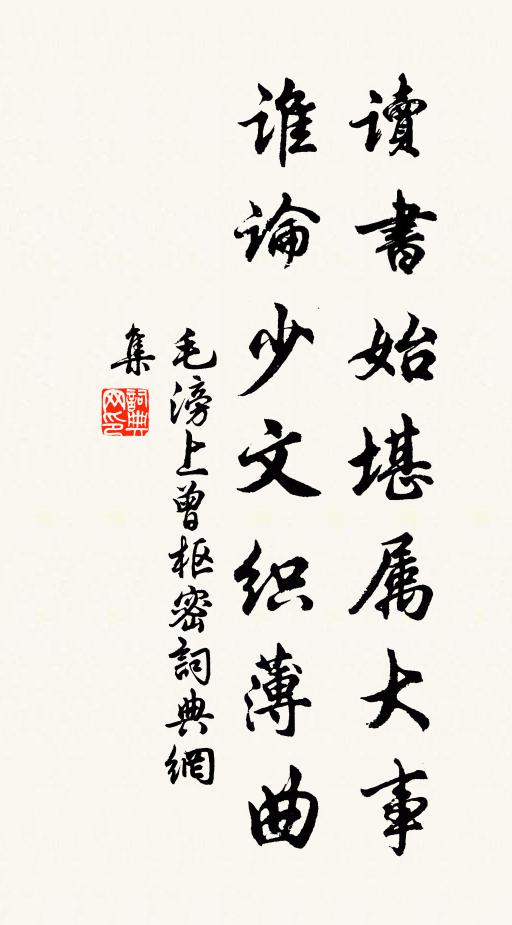 讀書始堪属大事
誰論少文织薄曲
毛滂上曾枢密詞典網
集
詞典网印